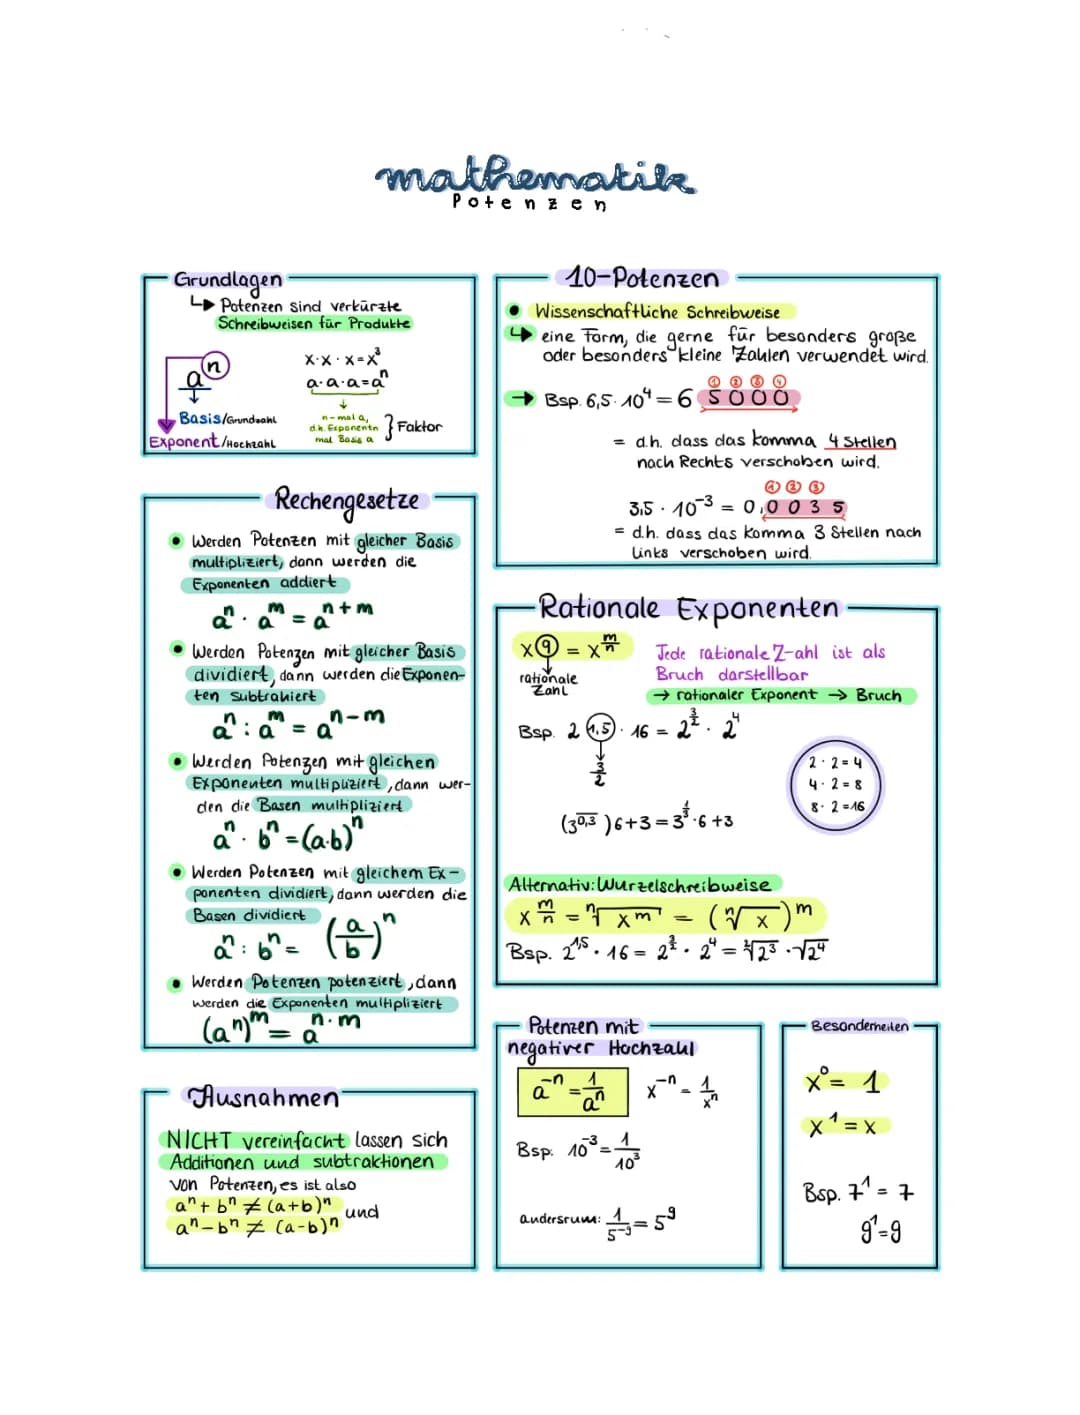 mathematik
Potenzen
Grundlagen
↳ Potenzen sind verkürzte
Schreibweisen für Produkte
aⁿ
x·x·x=x³
a·a·a=aⁿ
Basis/Grundzahl
Exponent/Hochzahl
n-mal a,
d.h. Exponentn
mal Basis a
} Faktor
Rechengesetze
• Werden Potenzen mit gleicher Basis
multipliziert, dann werden die
Exponenten addiert
aⁿ · aᵐ = aⁿ⁺ᵐ
• Werden Potenzen mit gleicher Basis
dividiert, dann werden die Exponen-
ten subtrahiert
aⁿ : aᵐ = aⁿ⁻ᵐ
• Werden Potenzen mit gleichen
Exponenten multipliziert, dann wer-
den die Basen multipliziert
aⁿ · bⁿ = (a·b)ⁿ
• Werden Potenzen mit gleichem Ex-
ponenten dividiert, dann werden die
Basen dividiert
aⁿ : bⁿ = (a/b)ⁿ
• Werden Potenzen potenziert, dann
werden die Exponenten multipliziert
(aⁿ)ᵐ = a^n·m
Ausnahmen
NICHT vereinfacht lassen sich
Additionen und subtraktionen
von Potenzen, es ist also
aⁿ + bⁿ ≠ (a+b)ⁿ und
aⁿ – bⁿ ≠ (a-b)ⁿ
10-Potenzen
• Wissenschaftliche Schreibweise
↳ eine Form, die gerne für besonders große
oder besonders kleine Zahlen verwendet wird.
① ② ③ ④
→ Bsp. 6,5 · 10⁴ = 6 5 0 0 0
= d.h. dass das komma 4 Stellen
nach Rechts verschoben wird.
① ② ③
3,5 · 10⁻³ = 0,0 0 3 5
= d.h. dass das komma 3 Stellen nach
Links verschoben wird.
Rationale Exponenten
x^q = x^m/n
rationale
Zahl
Jede rationale Z-ahl ist als
Bruch darstellbar
→ rationaler Exponent → Bruch
Bsp. 2 1,5 · 16 = 2^3/2 · 2⁴
3/2
2 · 2 = 4
4 · 2 = 8
8 · 2 = 16
(3^0,3̅ )6+3 = 3^1/3 · 6 +3
Alternativ: Wurzelschreibweise
x^m/n = ⁿ√xᵐ = (ⁿ√x)ᵐ
Bsp. 2^1,5 · 16 = 2^3/2 · 2⁴ = ²√2³ · √2⁴
Potenzen mit
negativer Hochzahl
a⁻ⁿ = 1/aⁿ
x⁻ⁿ = 1/xⁿ
Bsp. 10⁻³ = 1/10³
andersrum: 1/5⁻⁹ = 5⁹
Besonderheiten
x⁰ = 1
x¹ = x
Bsp. 7¹ = 7
9¹=9